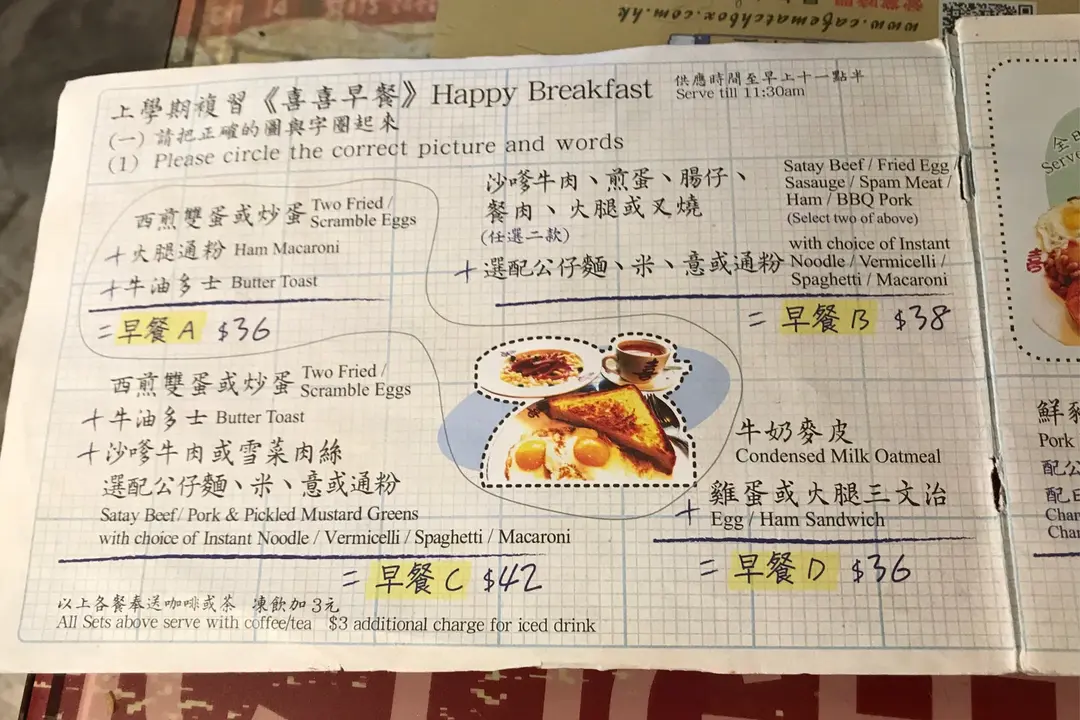 www.cafematchbox.com.hk
上學期複習《喜喜早餐》 Happy Breakfast
供應時間至早上十一點半
Serve till 11:30am
(一) 請把正確的圖與字圈起來
(1) Please circle the correct picture and words
西煎雙蛋或炒蛋 Two Fried / Scramble Eggs
+火腿通粉 Ham Macaroni
+牛油多士 Butter Toast
=早餐A $36
沙嗲牛肉、煎蛋、腸仔、
餐肉、火腿或叉燒
(任選二款)
+選配公仔麵、米、意或通粉
Satay Beef / Fried Egg /
Sasauge / Spam Meat /
Ham / BBQ Pork
(Select two of above)
with choice of Instant
Noodle / Vermicelli /
Spaghetti / Macaroni
=早餐B $38
西煎雙蛋或炒蛋 Two Fried / Scramble Eggs
+牛油多士 Butter Toast
+沙嗲牛肉或雪菜肉絲
選配公仔麵、米、意或通粉
Satay Beef/ Pork & Pickled Mustard Greens
with choice of Instant Noodle / Vermicelli / Spaghetti / Macaroni
=早餐C $42
牛奶麥皮
Condensed Milk Oatmeal
+雞蛋或火腿三文治
Egg / Ham Sandwich
=早餐D $36
以上各餐奉送咖啡或茶 凍飲加3元
All Sets above serve with coffee/tea $3 additional charge for iced drink
全
Serve
喜
鮮
Pork
配公
配